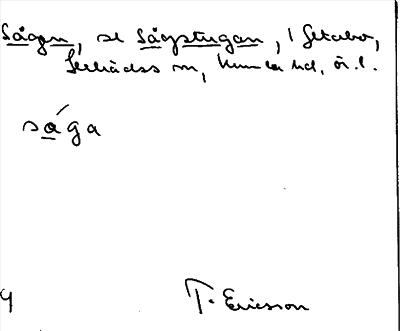 Sågen, se Sågstugan, i Getabo,
Lerbäcks sn, Kumla hd, ör. l.
såga
4
T. Ericsson